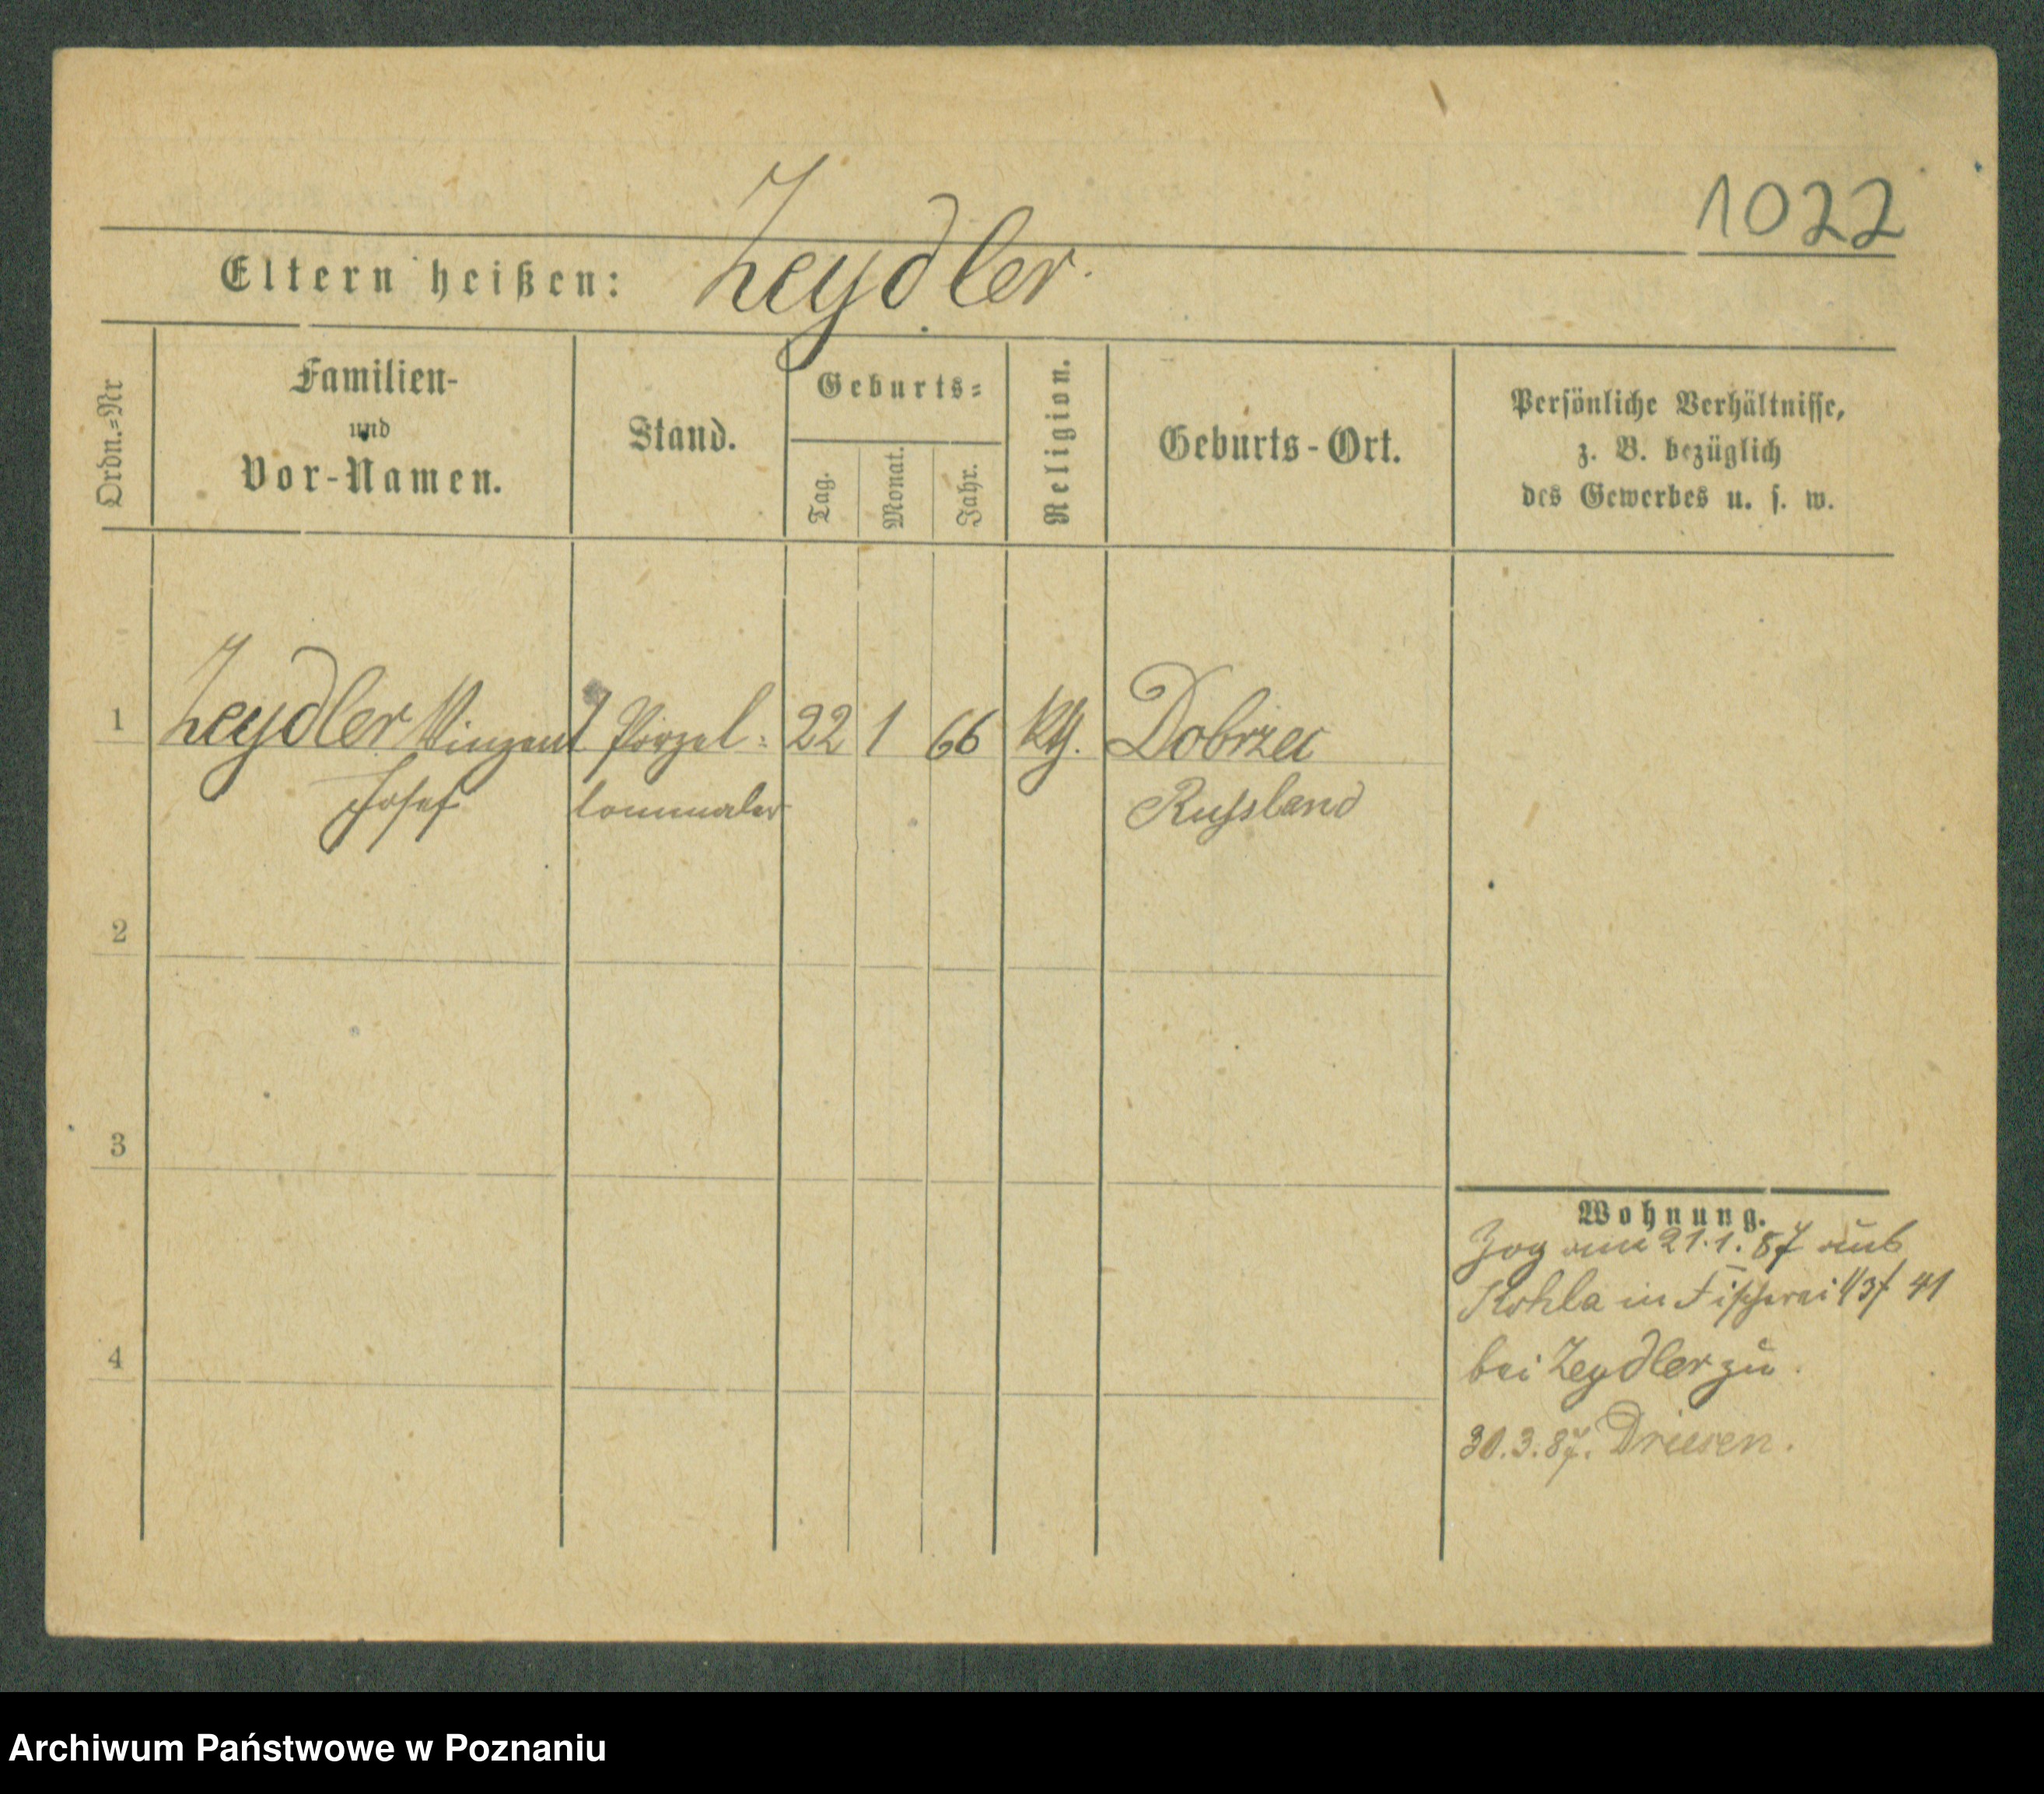 1022
Eltern heißen: Zeydler.
Ordn.=Nr
Familien-
und
Vor-Namen.
Stand.
Geburts=
Tag.
Monat.
Jahr.
Religion.
Geburts-Ort.
Persönliche Verhältnisse,
z. B. bezüglich
des Gewerbes u. s. w.
1 Zeydler Vinzent Porzel= 22 1 66 Kth. Dobrzec
Josef lanmaler Russland
2
3
4
Wohnung.
Zog am 21.1.87 aus
in Fischerei 41
bei Zeydler zu.
30.3.87. Driesen.
Archiwum Państwowe w Poznaniu